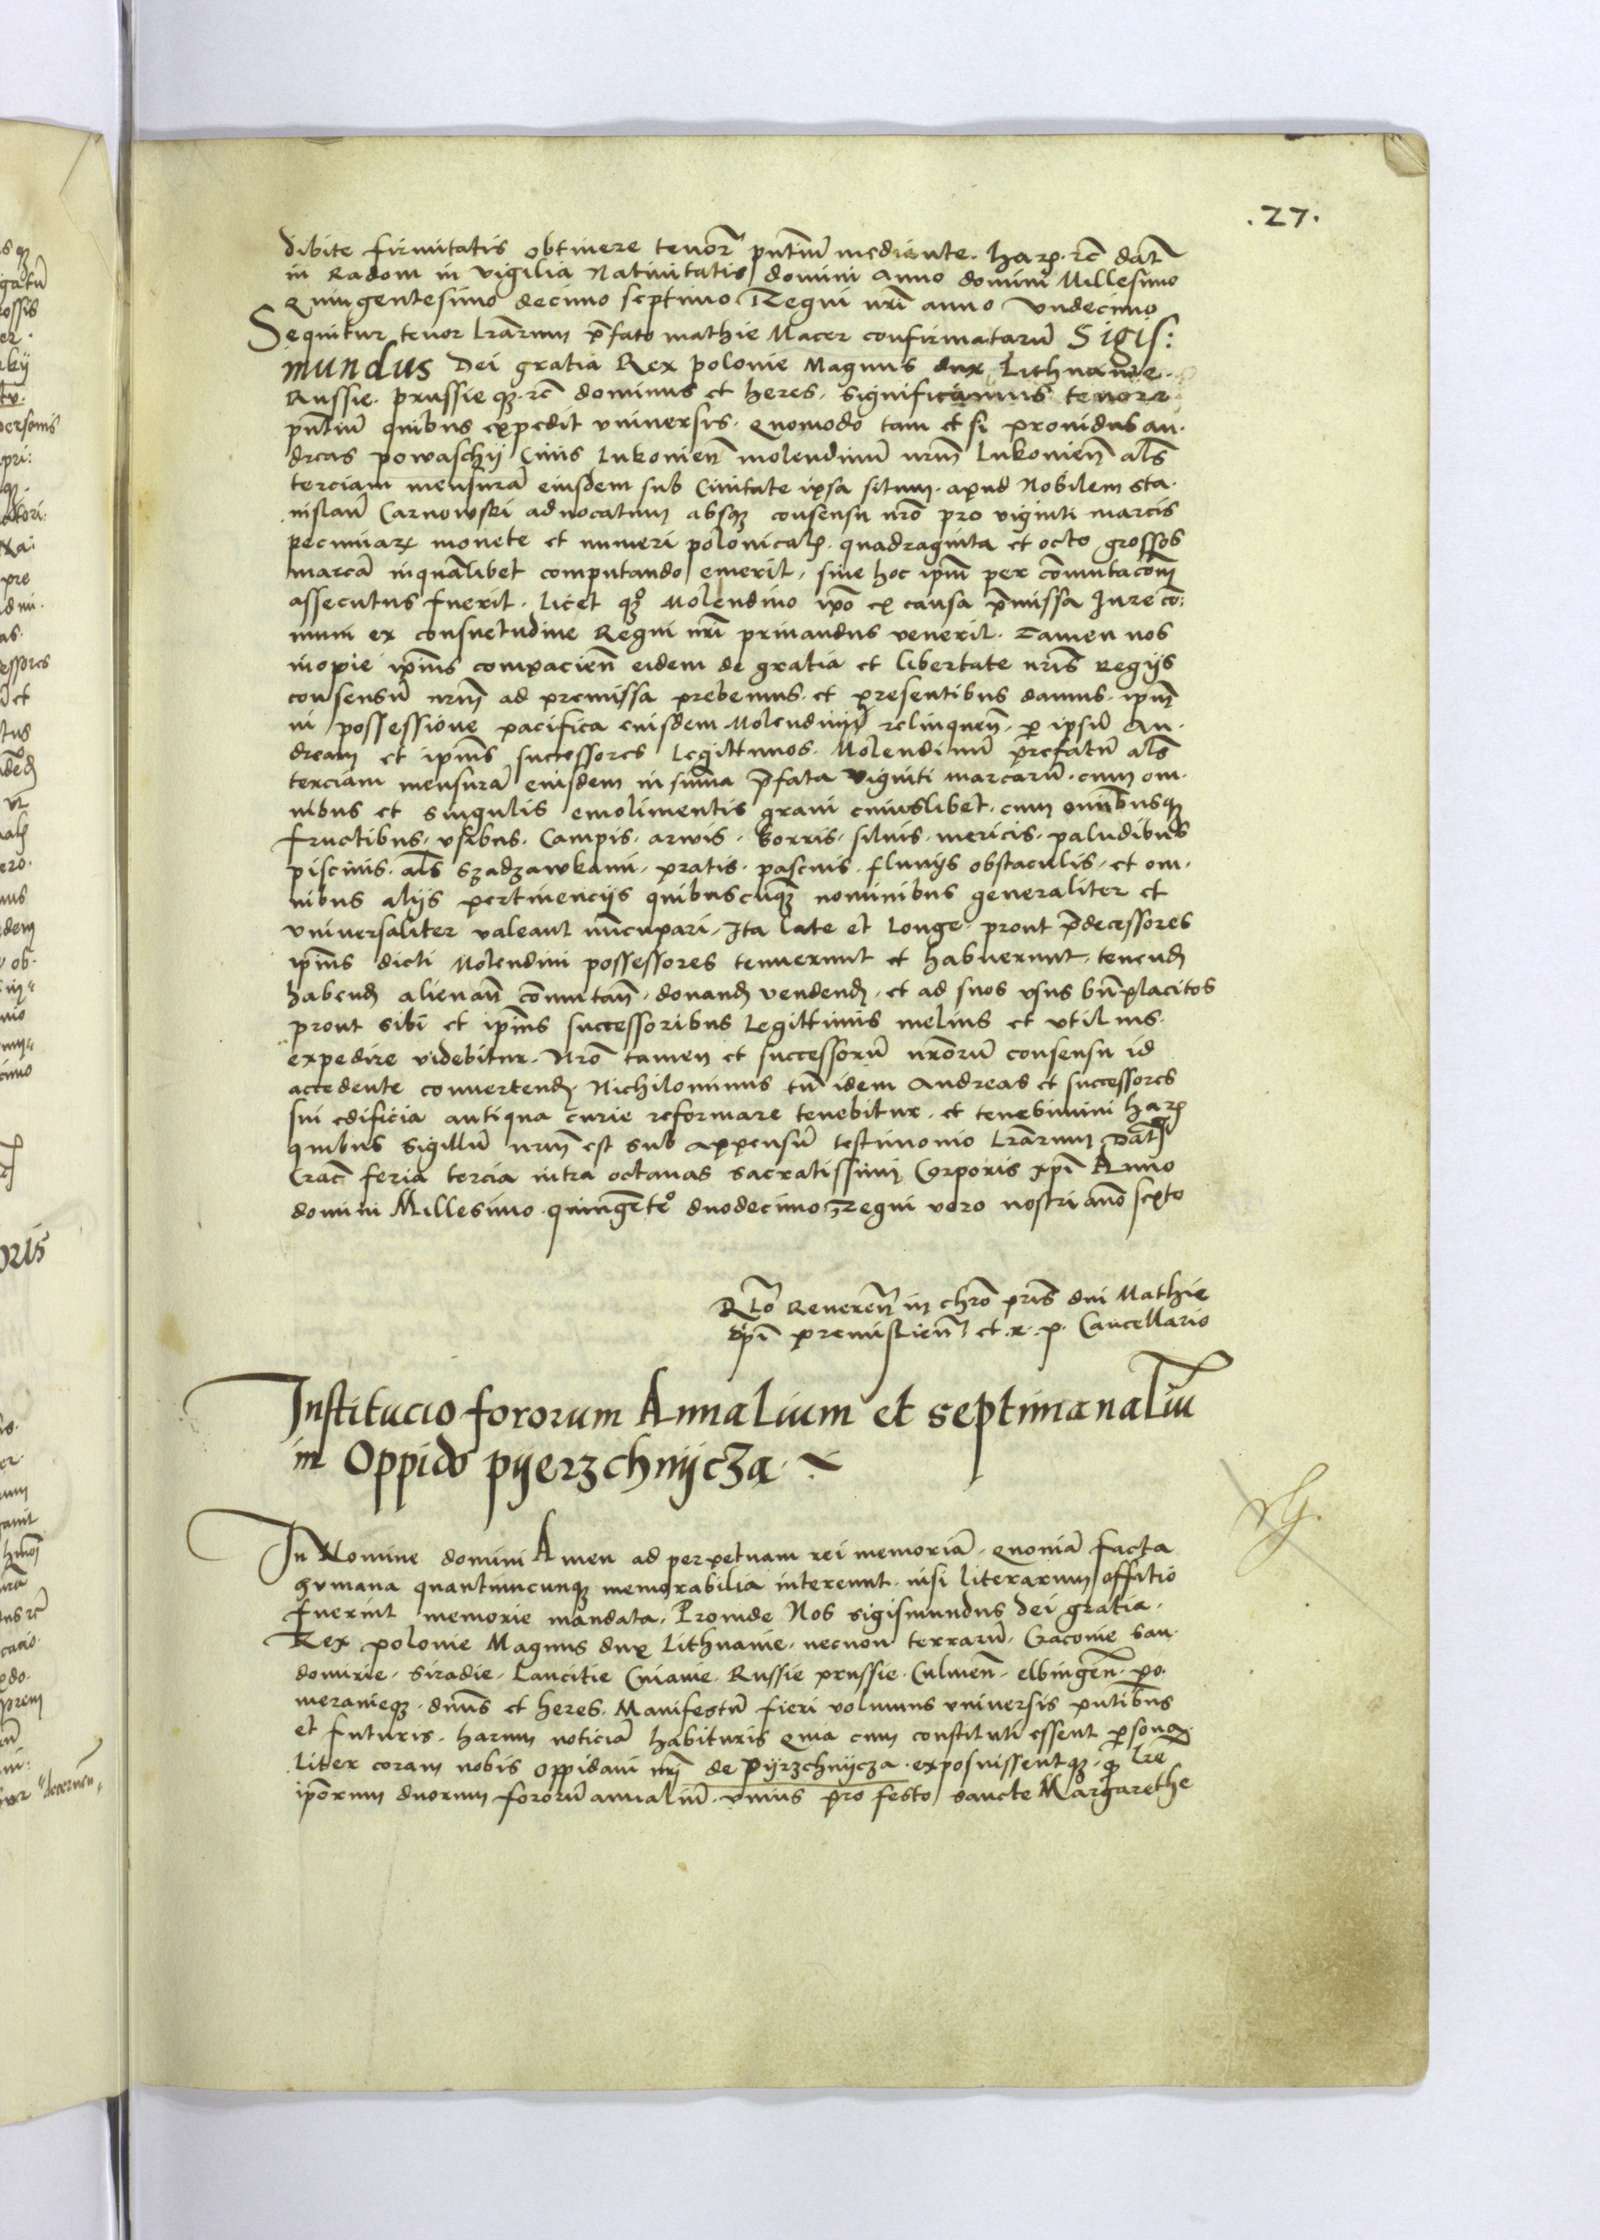 .27.
dibite firmitatis obtinere tenorē pñtium mediante. harꝝ. rc̄ dat̄
in Radom in vigilia Natiuitatis domini Anno domini Millesimo
Quingentesimo decimo septimo Regni nr̄i anno vndecimo
Sequitur tenor lr̄arum p̄fato mathie Macer confirmatarū Sigis:
mundus Dei gratia Rex polonie Magnus dux Lithuanie.
Russie. prussie qȝ. rc̄ dominus et heres. significamus tenore
pñtiū quibus expedit vniuersis. Quomodo tam et si prouidus an.
dreas powaschij Ciuis Lukouien̄ molendinū nrm̄ Lukouien̄ als̄
terciam mensurā eiusdem sub Ciuitate ipsa situm. apud Nobilem sta.
nislaū Carnowski aduocatum absqȝ consensu nrō pro viginti marcis
pecuniarꝝ monete et numeri polonicalꝫ. quadraginta et octo grossos
marcā inquālibet computando emerit, siue hoc ipm̄ per cōmutacōm̄
assecutus fuerit. licet qȝ Molendino ipō ex causa p̄missa Iure cō:
muni ex consuetudine Regni nr̄i priuandus venerit. Tamen nos
inopie ipīus compacien̄ eidem de gratia et libertate nr̄is Regijs
consensū nrm̄ ad premissa prebemus. et presentibus damus. ipm̄
in possessione pacifica eiusdem Molendinij relinquen̄. ꝑ ipsū An.
dream et ipīus successores Legittimos. Molendinū prefatū als̄
terciam mensurā eiusdem in sum̄a p̄fata viginti marcarū. cum om.
nibus et singulis emolimentis grani cuiuslibet. cum om̄ibusqȝ
fructibus. vsibus. Campis. arwis. borris. siluis. mericis. paludibus
piscinis. als̄ szadzawkami. pratis. pascuis. fluuijs obstaculis. et om.
nibus alijs pertinencijs quibuscūqȝ nominibus generaliter et
vniuersaliter valeant nūcupari. Ita late et Longe. prout p̄decessores
ipīus dicti Molendini possessores tenuerunt et habuerunt. tenendꝫ
habendꝫ alienan̄ cōmutan̄. donandꝫ vendendꝫ. et ad suos vsus bn̄placitos
prout sibi et ipīus successoribus Legittimis melius et vtilius.
expedire videbitur. Nrō tamen et successorū nrōrū consensu id
accedente conuertendꝫ. Nichilominus tn̄ idem Andreas et successores
sui edificia antiqua curie reformare tenebitur. et tenebimini harꝝ
quibus sigillū nrm̄ est sub appensū testimonio lr̄arum Dat̄
Crac̄ feria tercia intra octauas sacratissimi Corporis xpī Anno
domini Millesimo quingēteº duodecimo Regni vero nostri ano sexto
Rlō Reueren̄ in chrō pris̄ dni Mathie
epī premislien̄ et. r. p. Cancellario
Institucio fororum Annalium et septimanaliū
in Oppido pyerzchnijcza
In Nomine domini Amen ad perpetuam rei memoriā. quoniā facta
humana quantumcunqȝ memorabilia intereunt. nisi literarum offitio
fuerint memorie mandata. Proinde Nos sigismundus dei gratia.
Rex polonie Magnus dux Lithuanie. necnon terrarū. Cracouie san.
domirie. Siradie. Lancitie Cuiauie. Russie prussie. Culmen̄. elbingen̄. po.
meranieqȝ. dn̄us et heres. Manifestū fieri volumus vniuersis pntibus
et futuris. harum noticiā habituris Quia cum constituti essent ꝑsona.
liter coram nobis oppidani nr̄i de Pyrzchnijcza. exposuissentqȝ. ꝙ lrē
ipōrum duorum fororū annaliū. vnius pro festo sancte Margarethe